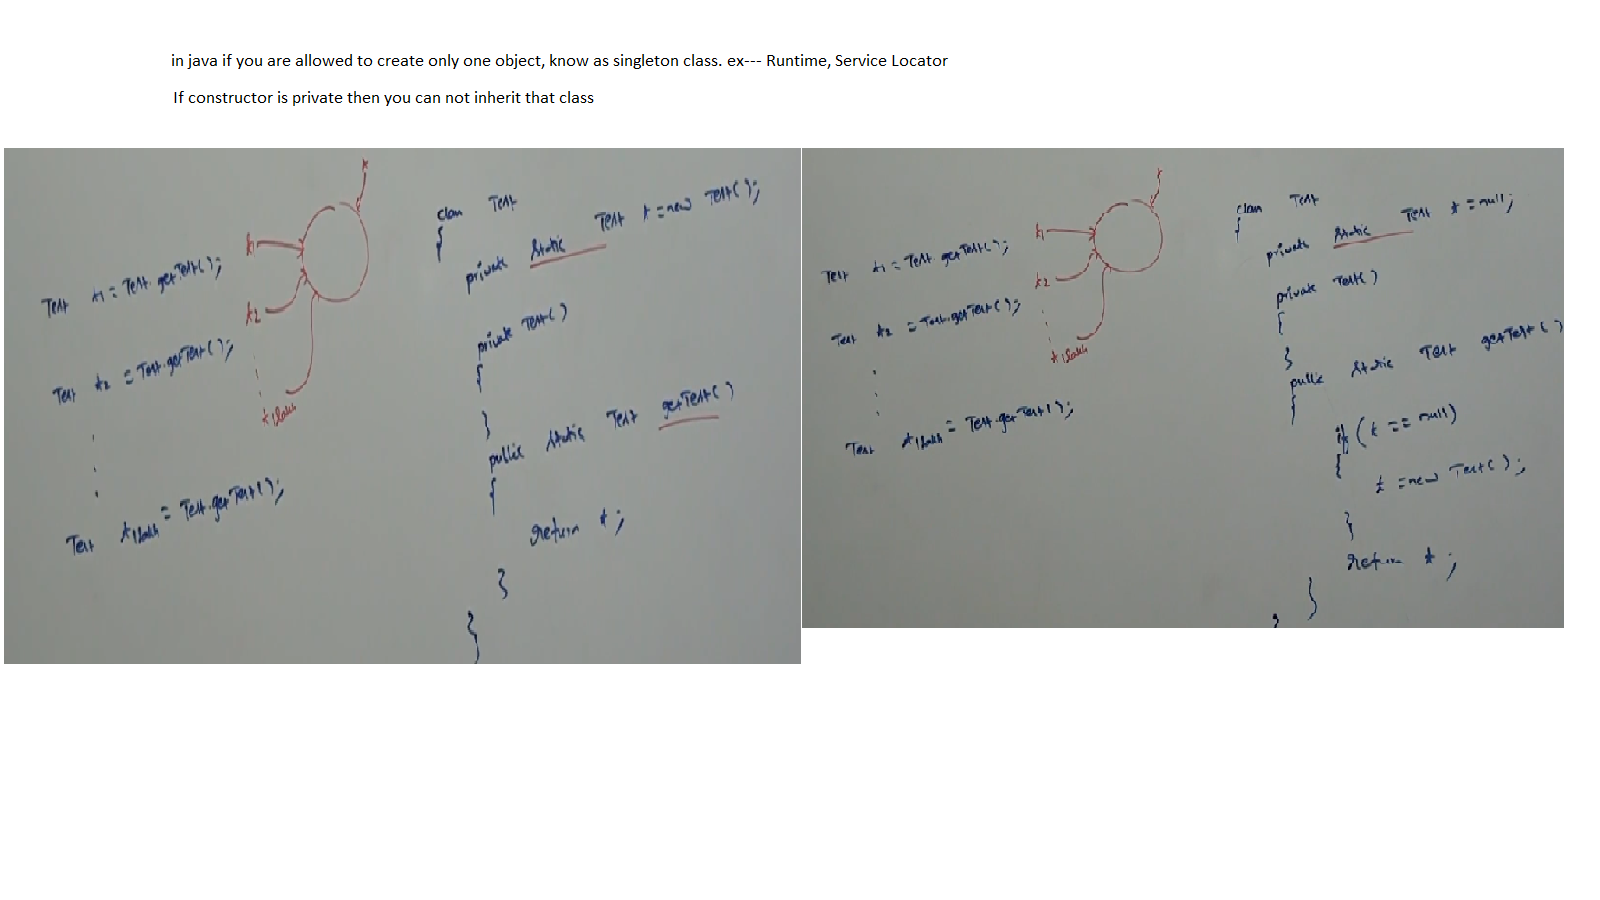 in java if you are allowed to create only one object, know as singleton class. ex--- Runtime, Service Locator
If constructor is private then you can not inherit that class
t
t1
t2
t1lakh
Test t1 = Test.getTest();
Test t2 = Test.getTest();
Test t1lakh = Test.getTest();
class Test
{
private static Test t = new Test();
private Test()
{
}
public static Test getTest()
{
return t;
}
}
t
t1
t2
t1lakh
Test t1 = Test.getTest();
Test t2 = Test.getTest();
Test t1lakh = Test.getTest();
class Test
{
private static Test t = null;
private Test()
{
}
public static Test getTest()
{
if (t == null)
{
t = new Test();
}
return t;
}
}